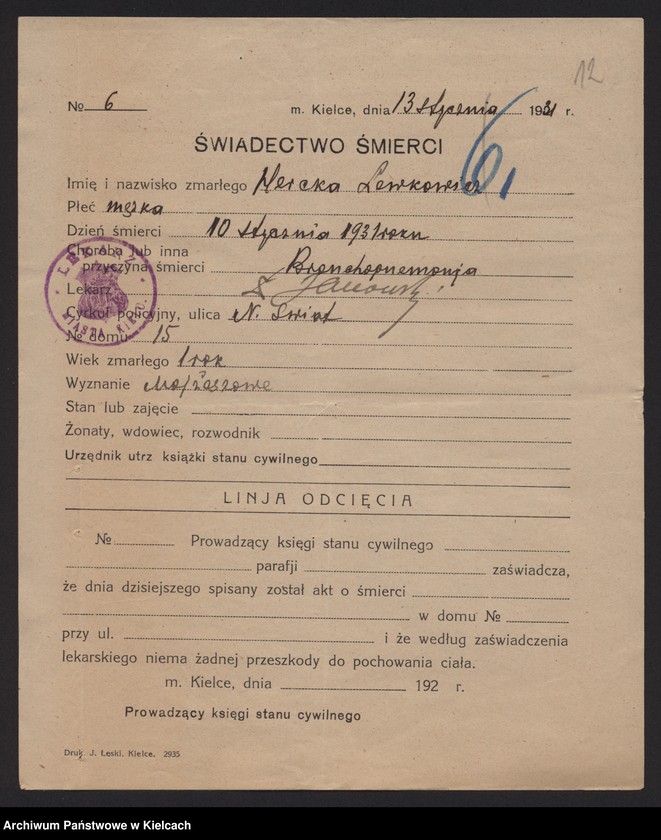 12
№ 6 m. Kielce, dnia 13 stycznia 1931 r.
ŚWIADECTWO ŚMIERCI
6,
Imię i nazwisko zmarłego Lewkowicz
Płeć męska
Dzień śmierci 10 stycznia 1931 roku
Choroba lub inna
przyczyna śmierci Bronchopnemonja
Lekarz
LEKARZ MIASTA KIELC
Cyrkuł policyjny, ulica N. Świat
№ domu 15
Wiek zmarłego 1 rok
Wyznanie Mojżeszowe
Stan lub zajęcie
Żonaty, wdowiec, rozwodnik
Urzędnik utrz książki stanu cywilnego
LINJA ODCIĘCIA
№ Prowadzący księgi stanu cywilnego
parafji zaświadcza,
że dnia dzisiejszego spisany został akt o śmierci
w domu №
przy ul. i że według zaświadczenia
lekarskiego niema żadnej przeszkody do pochowania ciała.
m. Kielce, dnia 192 r.
Prowadzący księgi stanu cywilnego
Druk. J. Łeski. Kielce. 2935
Archiwum Państwowe w Kielcach